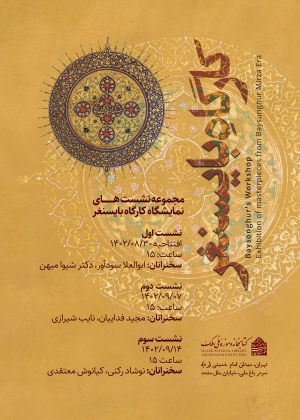 کارگاه بایسنغر
Baysonghur's Workshop
Exhibition of masterpieces from Baysunghur Mirza Era
مجموعه نشست‌هـــای
نمایشگاه کارگاه بایسنغر
نشست اول
افتتاحیه: ۱۴۰۲/۰۸/۳۰
ساعت: ۱۵
سخنرانان: ابوالعلا سودآور، دکتر شیوا میهن
نشست دوم
۱۴۰۲/۰۹/۰۷
ساعت: ۱۵
سخنرانان: مجید فداییان، نایب شیرازی
نشست سوم
۱۴۰۲/۰۹/۱۴
ساعت ۱۵
سخنرانان: نوشاد رکنی، کیانوش معتقدی
کتابخانه و موزه ملی ملک
MALEK NATIONAL LIBRARY
AND MUSEUM INSTITUTION
تهران، میدان امام خمینی (ره)،
سردر باغ ملی، خیابان ملل متحد